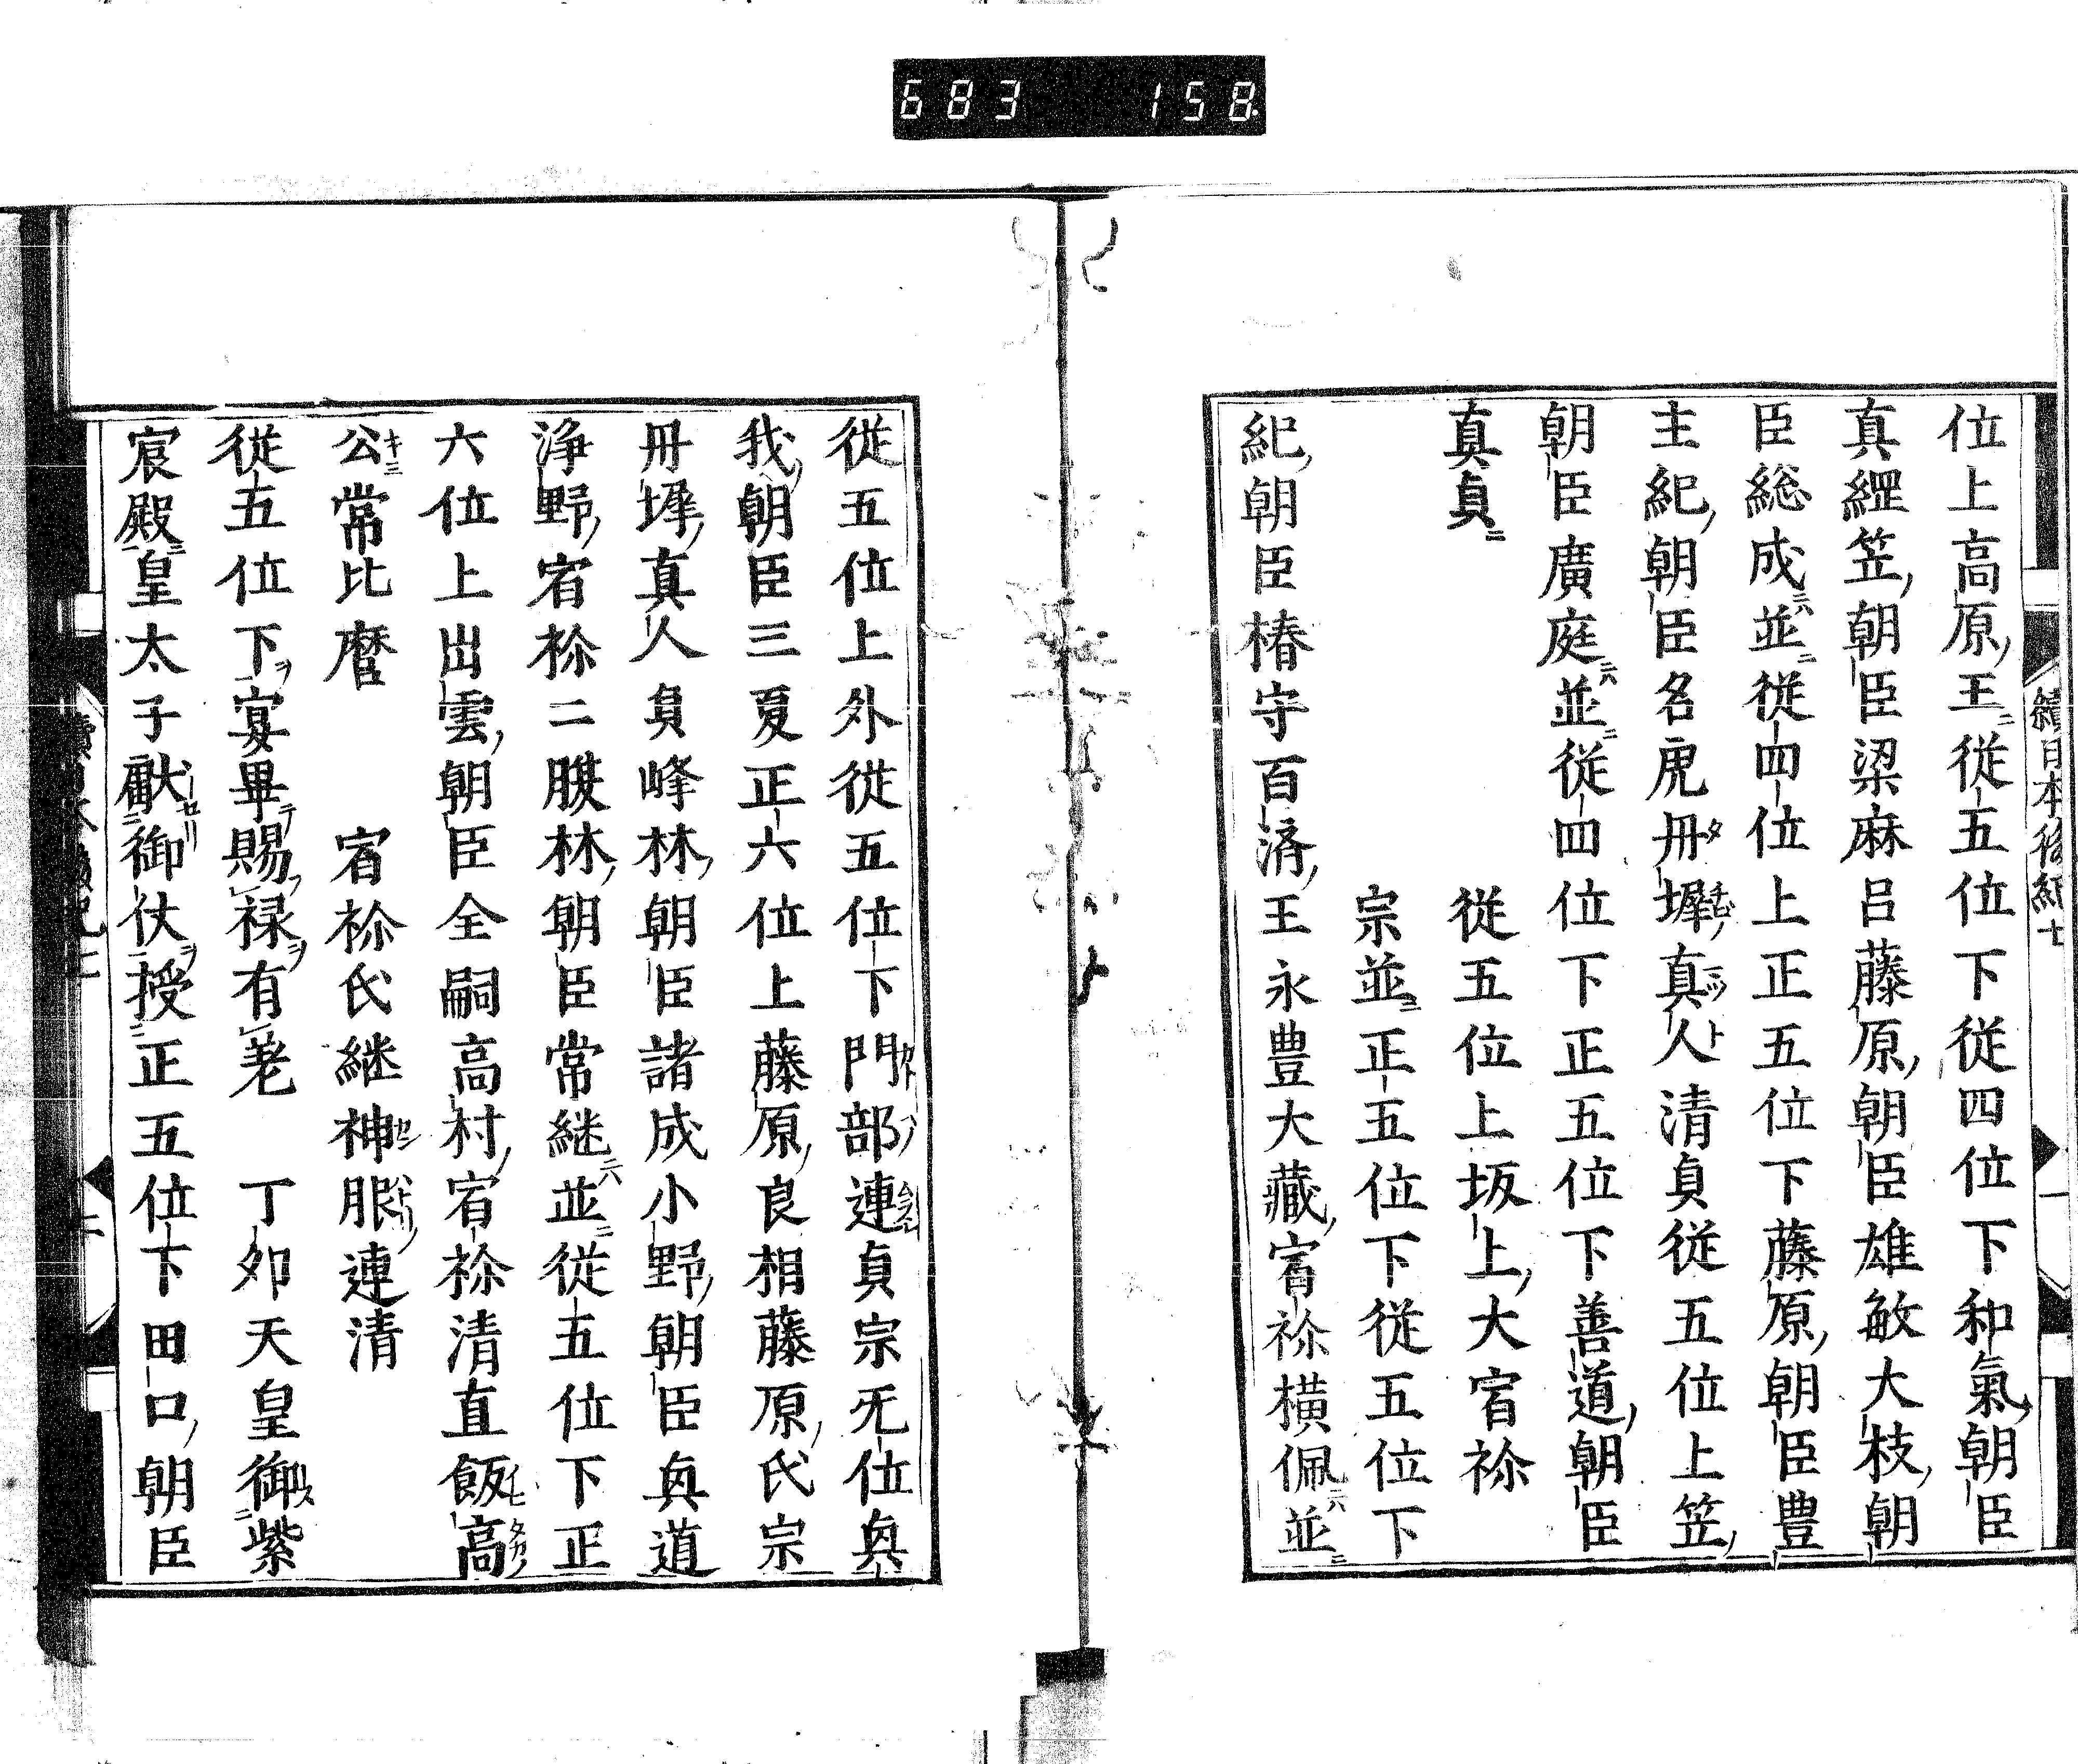 683 158
續日本後紀七 一
位上高原王從五位下從四位下和氣朝臣
真綱笠朝臣梁麻呂藤原朝臣雄敏大枝朝
臣総成並從四位上正五位下藤原朝臣豊
主紀朝臣名虎丹墀真人清貞從五位上笠
朝臣廣庭並從四位下正五位下善道朝臣
真貞 從五位上坂上大宿祢
宗並正五位下從五位下
紀朝臣椿守百済王永豊大藏宿祢横佩並
從五位上外從五位下門部連貞宗无位奥
我朝臣三夏正六位上藤原良相藤原氏宗
丹墀真人貞峰林朝臣諸成小野朝臣奥道
浄野宿祢二腰林朝臣常継並從五位下正
六位上出雲朝臣全嗣高村宿祢清直飯高
公常比麿 宿祢氏継神服連清
從五位下宴畢賜禄有差 丁夘天皇御紫
宸殿皇太子獻御仗授正五位下田口朝臣